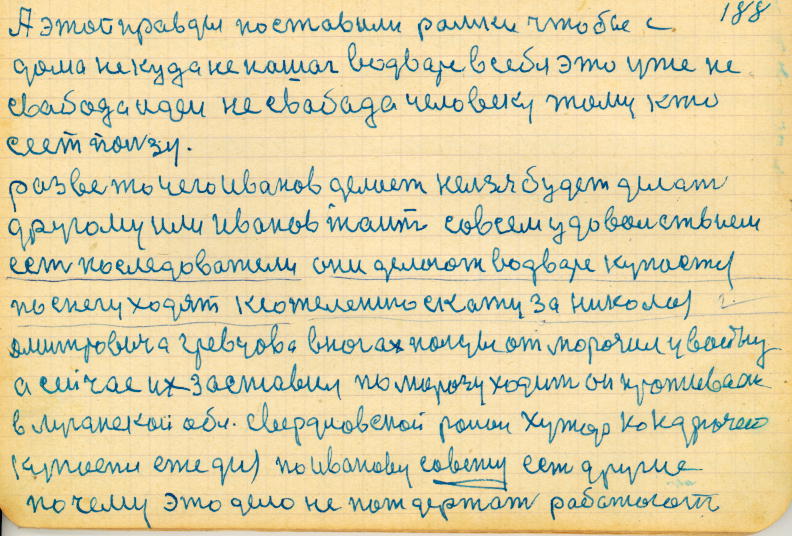 188
А этой правды поставили рамки чтобы с
дома некуда не шаг в одваре в себя это уже не
свабода идеи не свабада человеку тому кто
сеет ползу.
разве то чего иванов делает нелзя будет делат
другому или иванов таит совсем удоволствием
сет последователи они делают водваре купаетя
по снегу ходят к сожелению скажу за николая
дмитровича гревцова в ногах полцы от морочил у войну
а сейчас их заставил по морозу ходит он проживает
в луганской обл. свердловской район хутор Кокдрючего
купаетя ежедня по иванову совету ест другие
почему это дело не потдержат работают